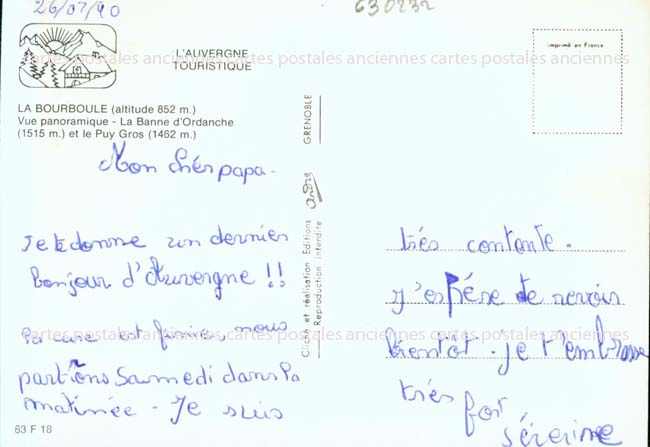 26/07/90
630232
L'AUVERGNE
TOURISTIQUE
imprimé en France
cartes postales anciennes cartes postales anciennes cartes postales anciennes
LA BOURBOULE (altitude 852 m.)
Vue panoramique - La Banne d'Ordanche
(1515 m.) et le Puy Gros (1462 m.)
Mon chér papa.
Je te donne un dernier
bonjour d'Auvergne !!
la cure est finie, nous
partons Samedi dans la
matinée - Je suis
63 F 18
Cliché et réalisation Editions André GRENOBLE
Reproduction interdite
trés contente.
J'espére te revoir
bientôt. je t'embrasse
trés fort
séverine
cartes postales anciennes cartes postales anciennes cartes postales anciennes